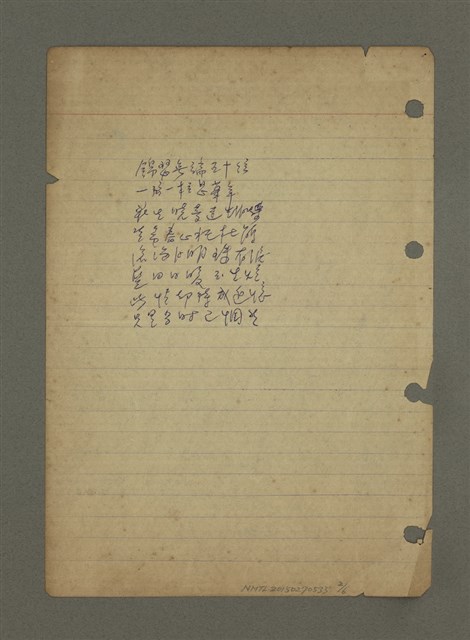 錦瑟無端五十弦
一弦一柱思華年
莊生曉夢迷蝴蝶
望帝春心託杜鵑
滄海月明珠有淚
藍田日暖玉生煙
此情待成追憶
只是當時已惘然
NMTL20150270535 2/6